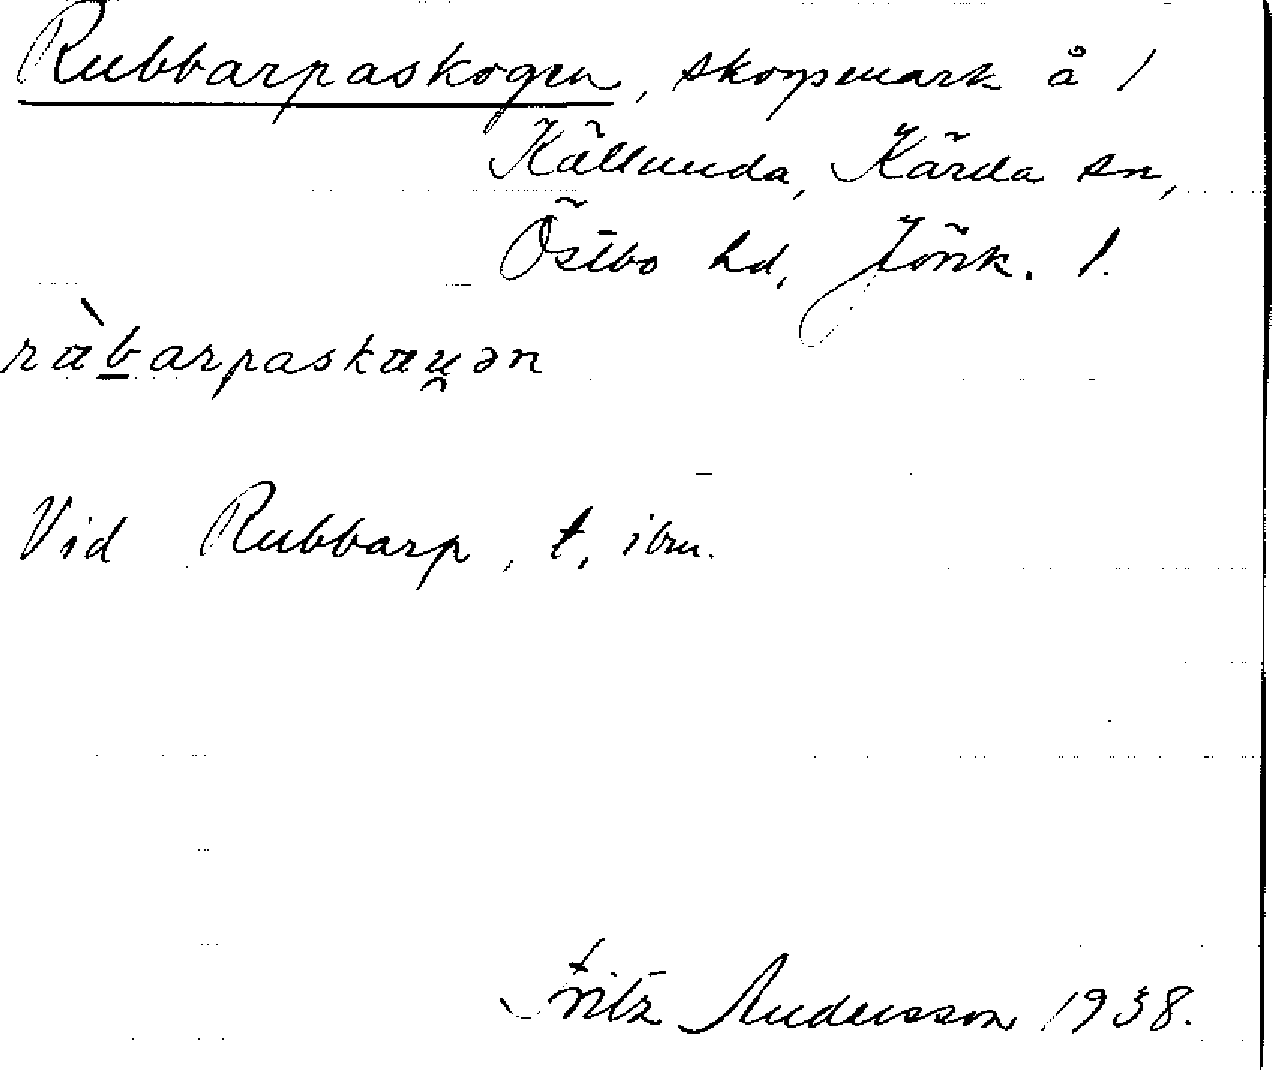 Rubbarpaskogen, skogsmark å 1
Källunda, Kärda sn,
Östbo hd, Jönk. l.
ràbarpaskau̯ən
Vid Rubbarp, t, ibm.
Fritz Andersson 1938.